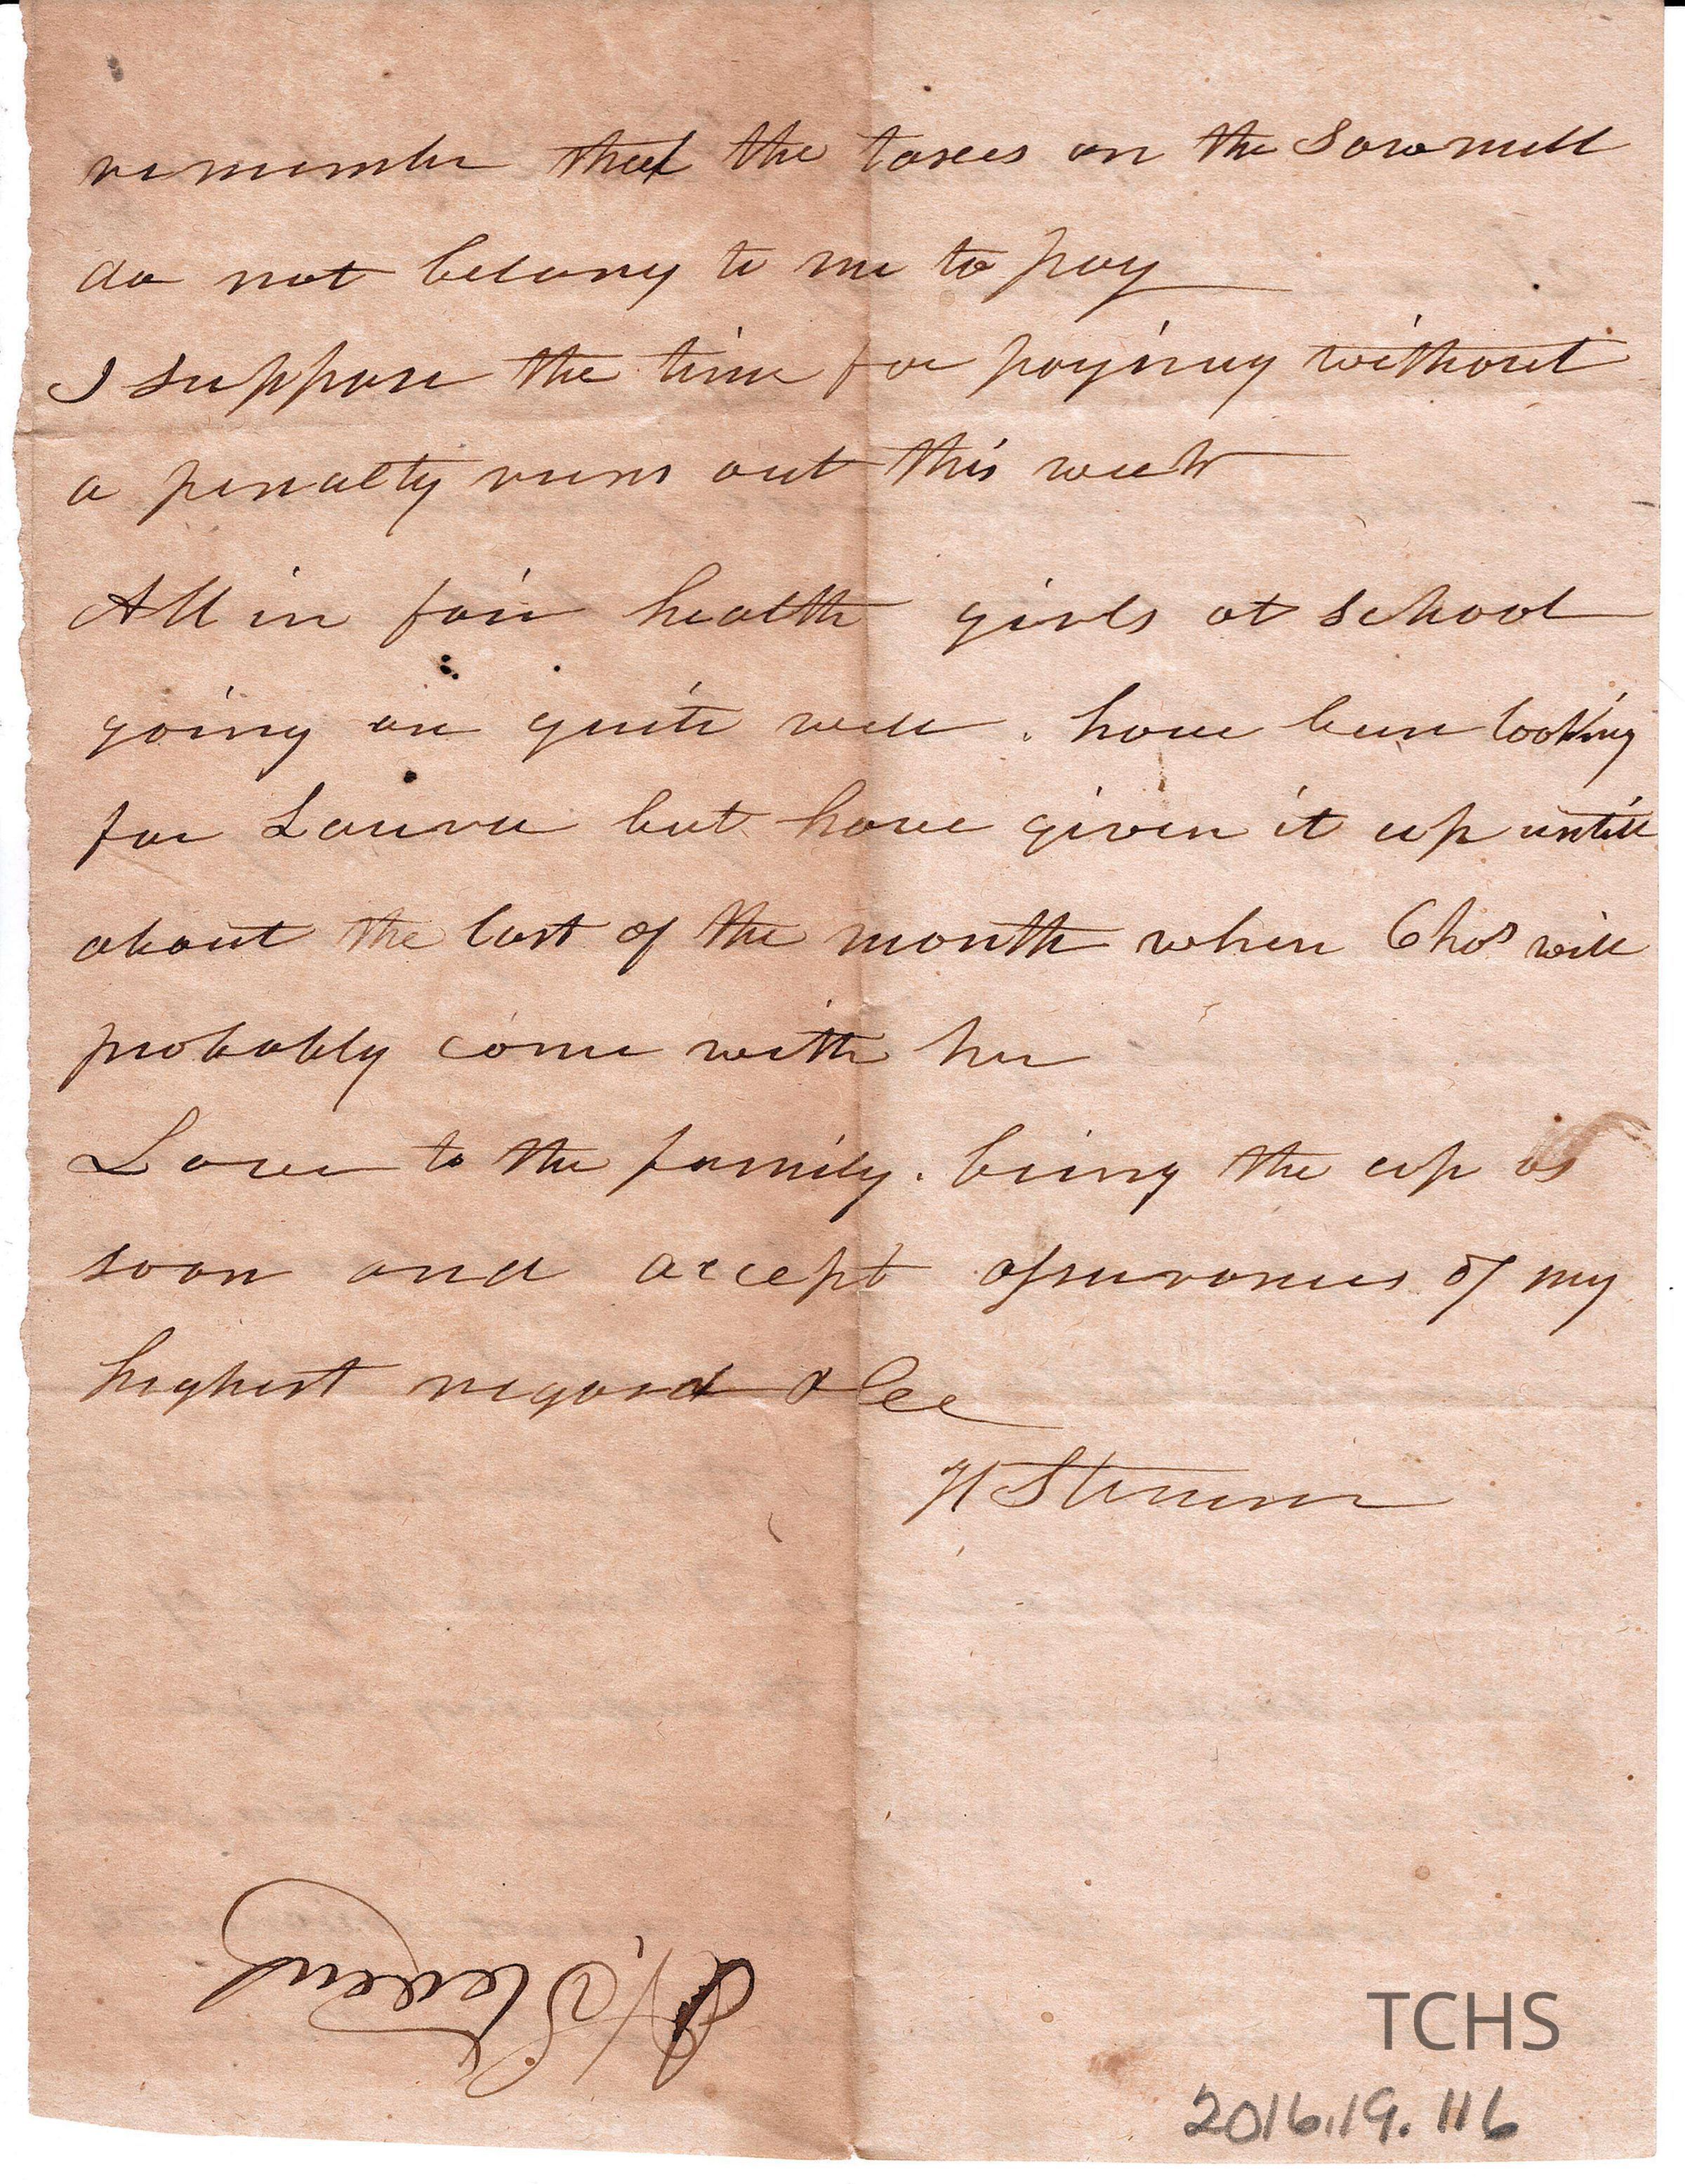 remember that the taxes on the Sawmill
do not belong to me to pay
I suppose the time for paying without
a penalty runs out this week
All in fair health girls at school
going on quite well . have been looking
for Laura but have given it up untill
about the last of the month when Chas will
probably come with her
Love to the family . bring the up as
soon and accept assurances of my
highest regard &cc
H Stevens
H, Stevens
TCHS
2016.19.116